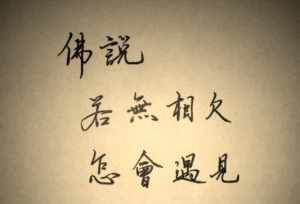 佛説
若無相欠
怎會遇見